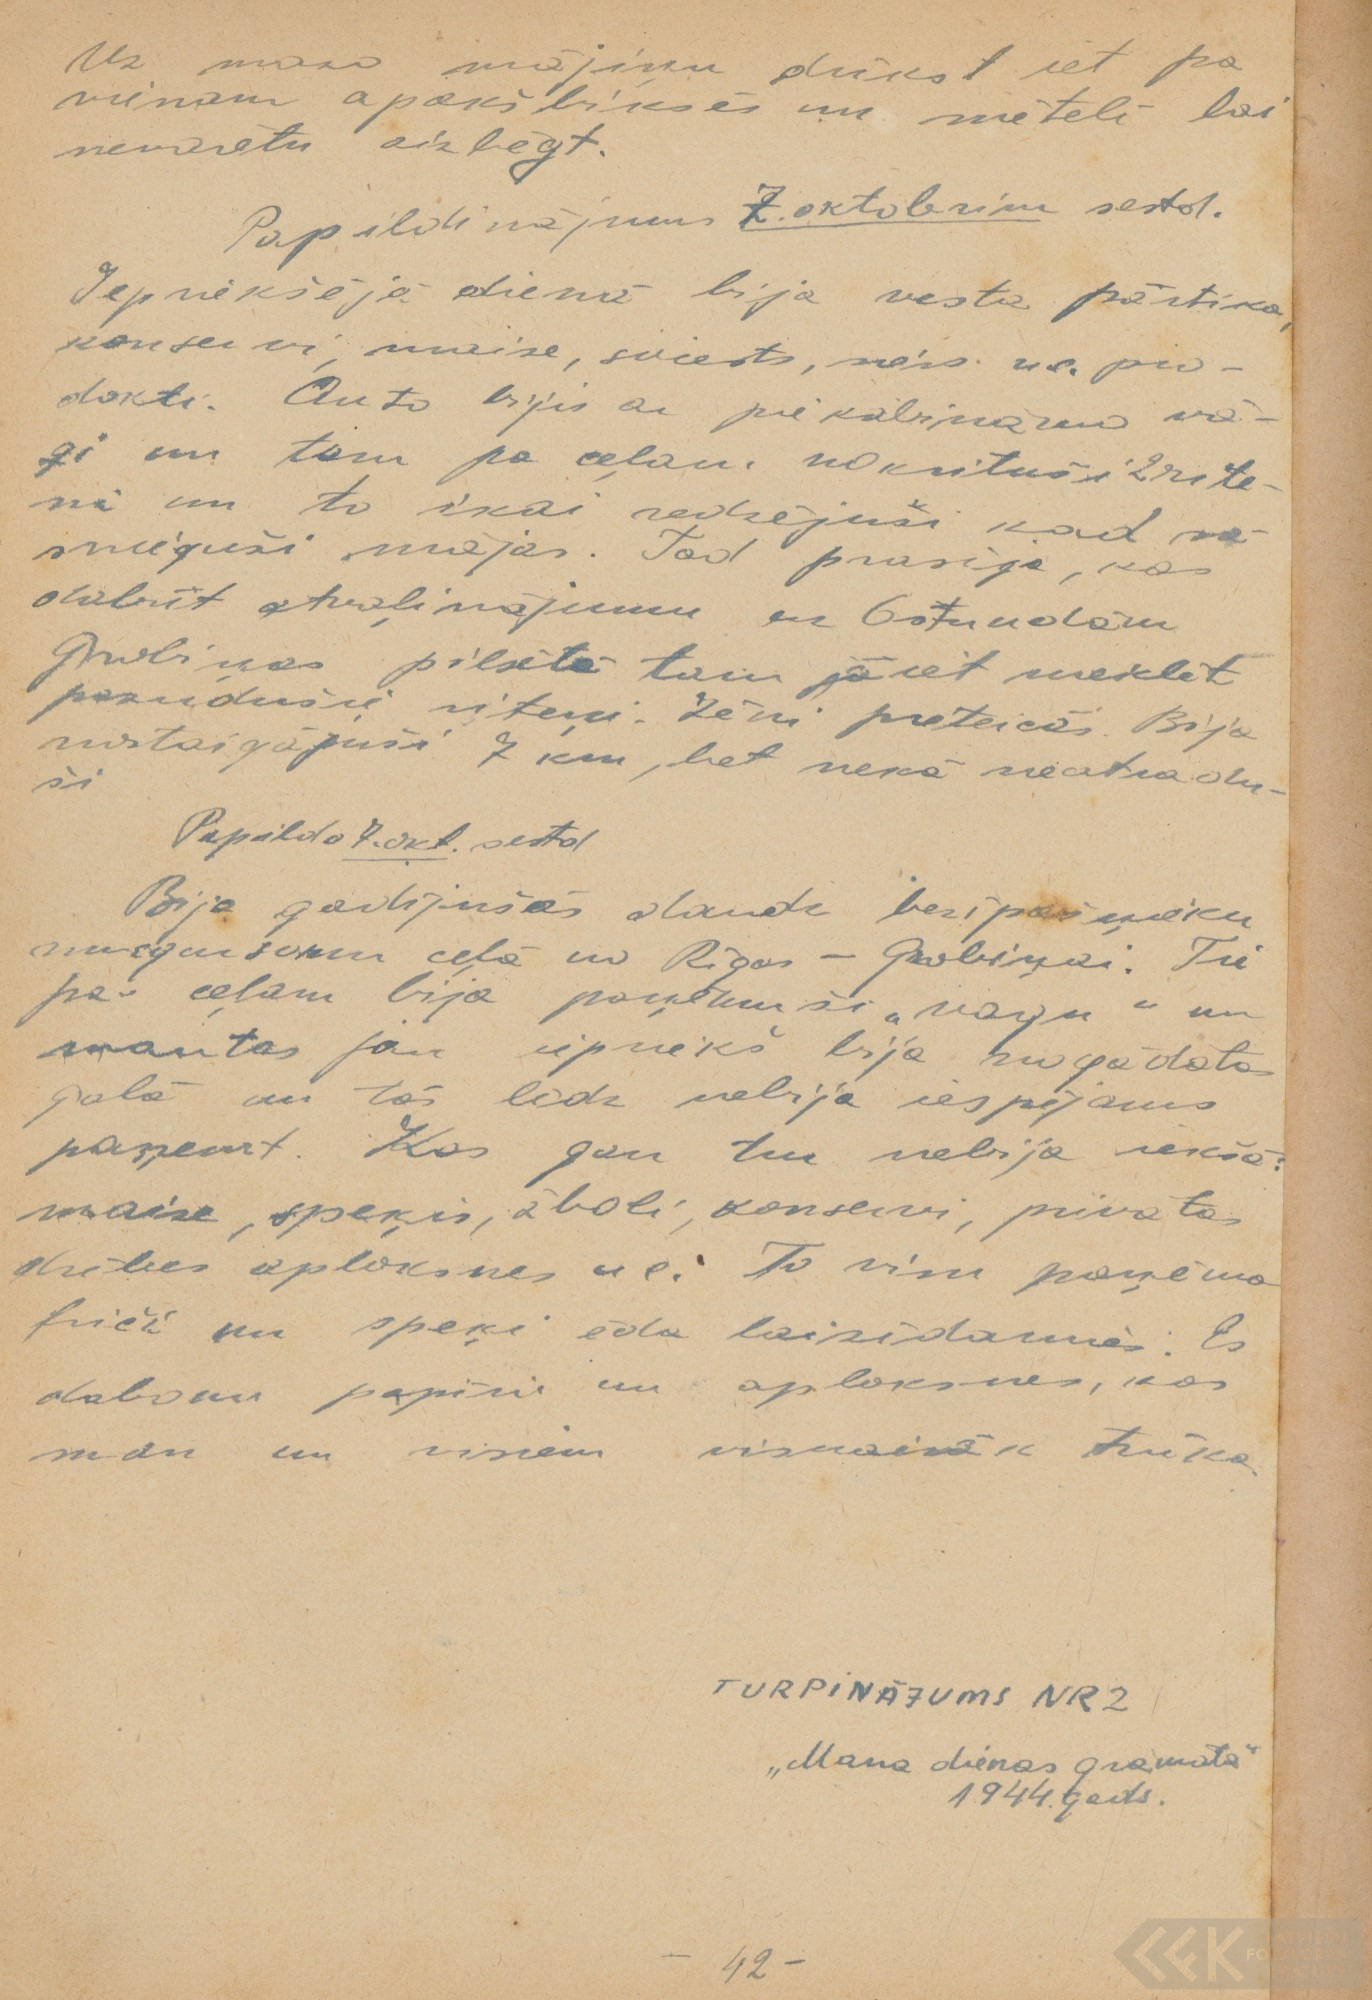 Uz mazo mājiņu drīkst iet pa
vienam apakšbiksēs un mētelī lai
nevarētu aizbēgt.
Papildinājums 7. oktobrim sestd.
Iepriekšējā dienā bija vesta pārtika,
konservi, maize, sviests, un. pro-
dukti. Auto bijis ar piekabināmo vā-
gi un tam pa ceļam nokrituši 2 rite-
ņi un to tikai redzējuši kad sa-
snieguši mājas. Tad prasīja, kas
dabūt atvaļinājumu uz 6 stundām
Grobiņas pilsētā tam jāiet meklēt
pazudušie riteņi. Zēni pieteicās. Bija
nostaigājuši 7 km, bet nekā neatradu-
ši
Papilda 7. okt. sestd
Bija gadījušās daudz bezīpašnieku
mugursomu ceļā no Rīgas – Grobiņai. Tie
pa ceļam bija paņēmuši „vāģu" un
mantas jau iepriekš bija nogādātas
galā un tās līdz nebija iespējams
paņemt. Kas gan tur nebija iekšā:
maize, speķis, āboli, konservi, privātas
drēbes aploksnes uc. To visu paņēma
friči un speķi ēda laizīdamies. Es
dabonu papīri un aploksnes, kas
man un visiem visvairāk trūka.
TURPINĀJUMS NR 2
„Mana dienas grāmata"
1944. gads.
– 42 –